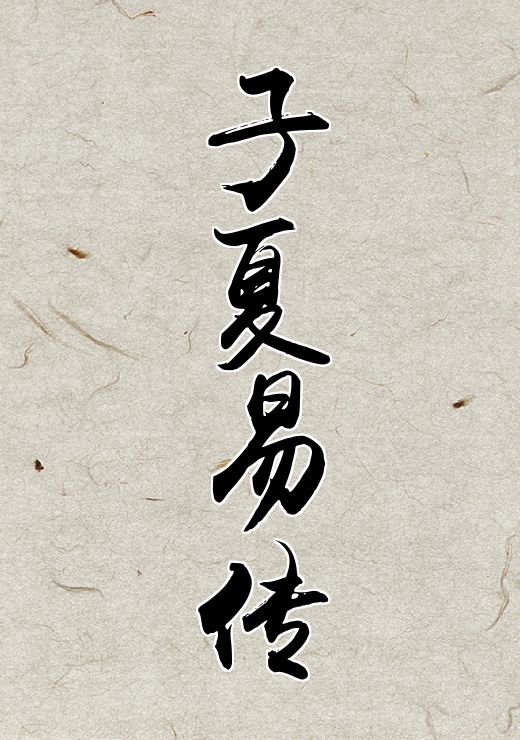 子夏易传